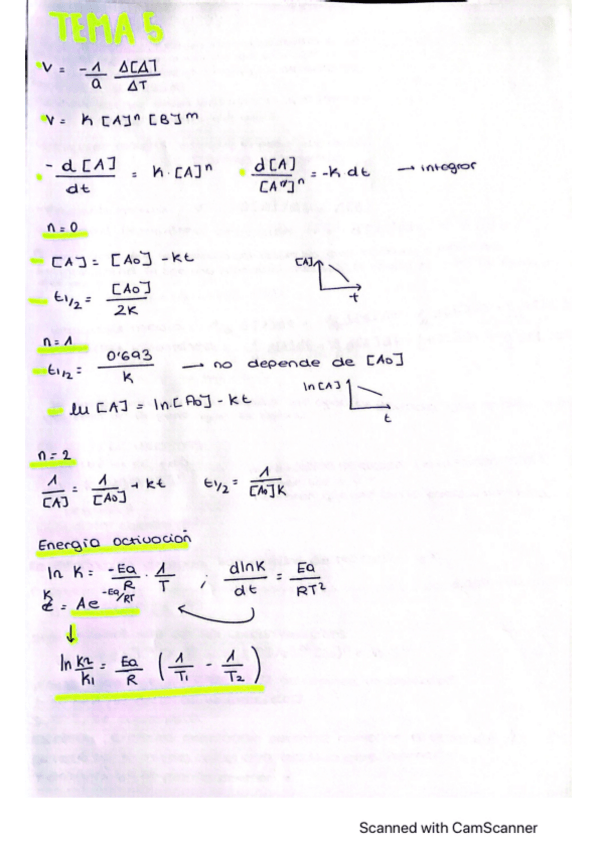 TEMA 5
V = -1/a Δ[A]/ΔT
V = K [A]ⁿ [B]ᵐ
- d[A]/dt = K · [A]ⁿ   d[A]/[A⁰]ⁿ = -K dt → integror
n=0
[A] = [A0] - Kt   [A] t
t1/2 = [A0]/2K
n=1
t1/2 = 0'693/K → no depende de [A0]
ln [A] = ln [A0] - Kt   ln [A] t
n=2
1/[A] = 1/[A0] + Kt   t1/2 = 1/[A0]K
Energía activación
ln K = -Ea/R · 1/T ; dlnK/dt = Ea/RT²
K = Ae^-Ea/RT
↓
ln K2/K1 = Ea/R (1/T1 - 1/T2)
Scanned with CamScanner